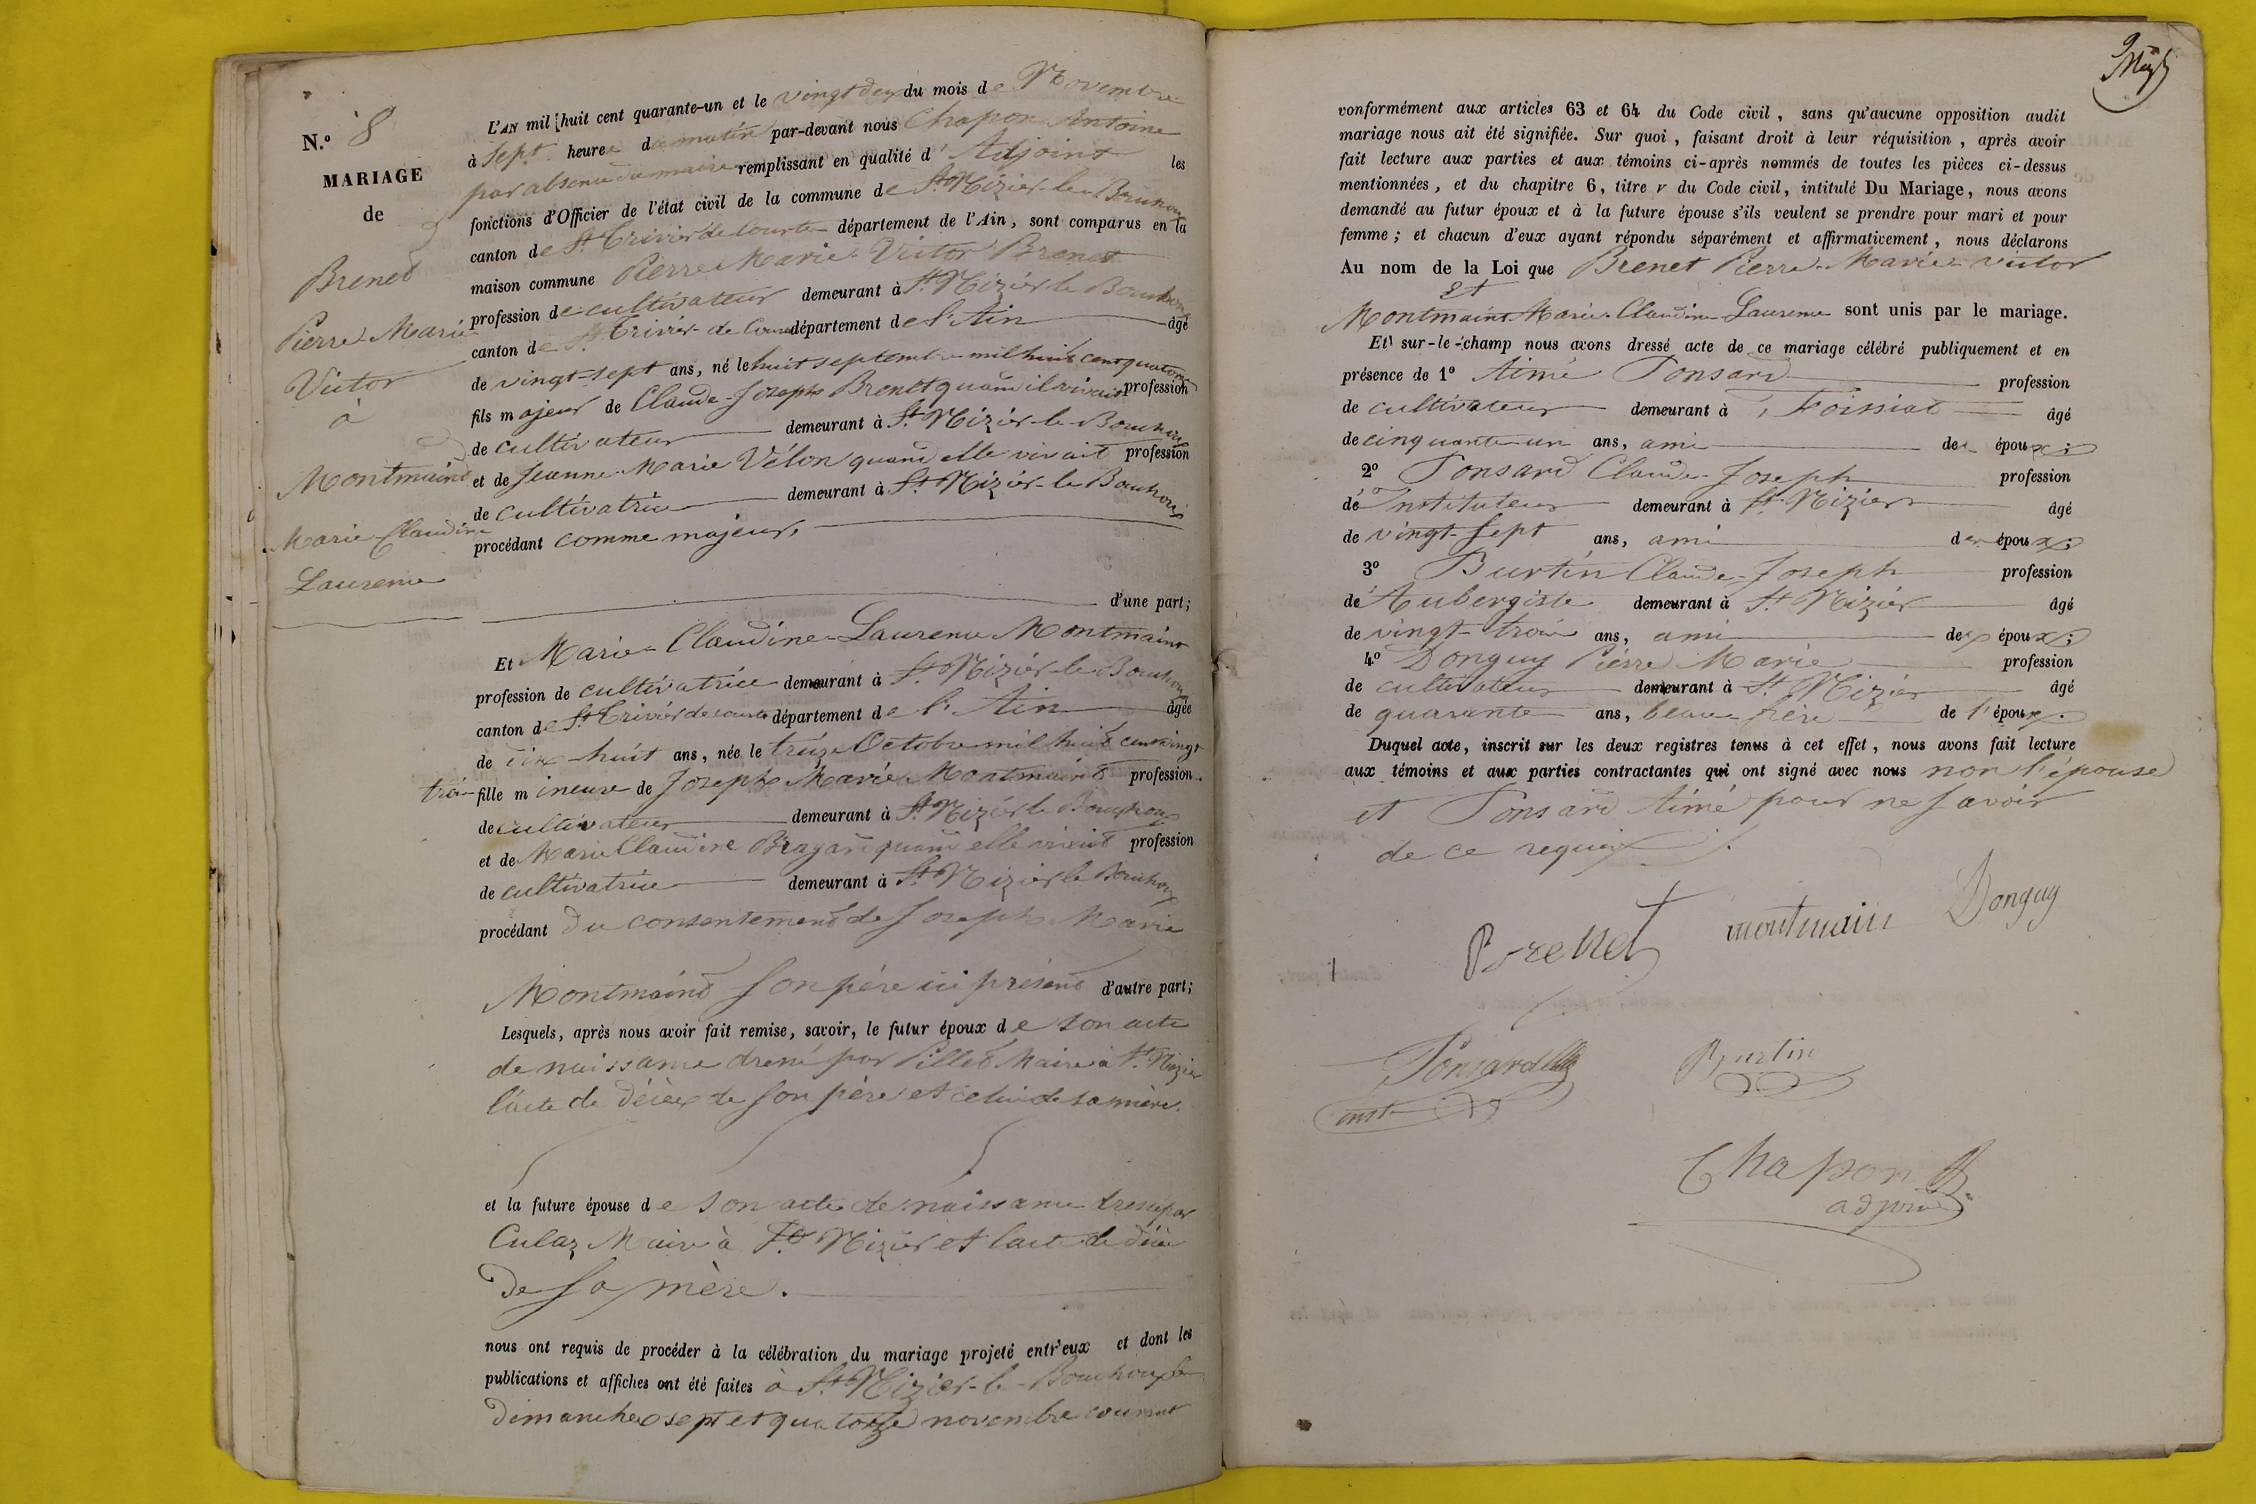 N.º 8
MARIAGE
de
Brenet
Pierre Marie
Victor
à
Montmaint
Marie Claudine
Laurence
L'AN mil huit cent quarante-un et le vingt deux du mois de Novembre
à sept heures du matin par-devant nous Chapon Antoine
par absence du maire remplissant en qualité d'Adjoint les
fonctions d'Officier de l'état civil de la commune de St Nizier-le-Bouchoux
canton de St Trivier de Courtes département de l'Ain, sont comparus en la
maison commune Pierre Marie Victor Brenet
profession de cultivateur demeurant à St Nizier le Bouchoux
canton de St Trivier de Courtes département de l'Ain âgé
de vingt-sept ans, né le huit septembre mil huit cent quatorze
fils majeur de Claude-Joseph Brenet quand il vivait profession
de cultivateur demeurant à St Nizier-le-Bouchoux
et de Jeanne-Marie Vélon quand elle vivait profession
de cultivatrice demeurant à St Nizier-le-Bouchoux
procédant comme majeur,
d'une part;
Et Marie-Claudine-Laurence Montmaint
profession de cultivatrice demeurant à St Nizier-le-Bouchoux
canton de St Trivier de Courtes département de l'Ain âgée
de dix-huit ans, née le treize Octobre mil huit cent vingt
trois fille mineure de Joseph Marie Montmaint profession
de cultivateur demeurant à St Nizier le Bouchoux
et de Marie Claudine quand elle vivait profession
de cultivatrice demeurant à St Nizier le Bouchoux
procédant du consentement de Joseph Marie
Montmaint son père ici présent d'autre part;
Lesquels, après nous avoir fait remise, savoir, le futur époux de son acte
de naissance dressé par Pillet Maire à St Nizier
l'acte de décès de son père et celui de sa mère.
et la future épouse de son acte de naissance dressé par
Culaz Maire à St Nizier et l'acte de décès
de sa mère.
nous ont requis de procéder à la célébration du mariage projeté entr'eux et dont les
publications et affiches ont été faites à St Nizier-le-Bouchoux les
dimanches sept et quatorze novembre courant
conformément aux articles 63 et 64 du Code civil, sans qu'aucune opposition audit
mariage nous ait été signifiée. Sur quoi, faisant droit à leur réquisition, après avoir
fait lecture aux parties et aux témoins ci-après nommés de toutes les pièces ci-dessus
mentionnées, et du chapitre 6, titre v du Code civil, intitulé Du Mariage, nous avons
demandé au futur époux et à la future épouse s'ils veulent se prendre pour mari et pour
femme; et chacun d'eux ayant répondu séparément et affirmativement, nous déclarons
Au nom de la Loi que Brenet Pierre-Marie-victor
et
Montmaint Marie-Claudine-Laurence sont unis par le mariage.
Et sur-le-champ nous avons dressé acte de ce mariage célébré publiquement et en
présence de 1º Aimé Ponsard profession
de cultivateur demeurant à Foissiat âgé
de cinquante-un ans, ami des époux;
2º Ponsard Claude-Joseph profession
de Instituteur demeurant à St Nizier âgé
de vingt-sept ans, ami des époux;
3º Burtin Claude-Joseph profession
de Aubergiste demeurant à St Nizier âgé
de vingt-trois ans, ami des époux;
4º Donguy Pierre Marie profession
de cultivateur demeurant à St Nizier âgé
de quarante ans, beau-frère de l'époux.
Duquel acte, inscrit sur les deux registres tenus à cet effet, nous avons fait lecture
aux témoins et aux parties contractantes qui ont signé avec nous non l'épouse
et Ponsard Aimé pour ne savoir
de ce requis.
Brenet montmain Donguy
Ponsard Burtin
inst
Chapon
adjoint